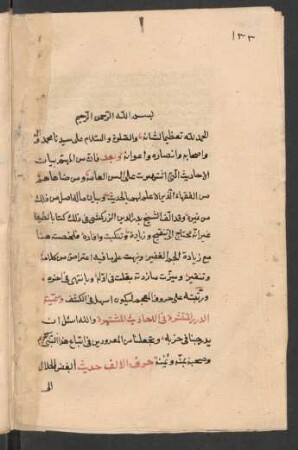 ١٣٣
بسم الله الرحمن الرحيم
الحمد لله تعظيما لشانه والصلوة والسلام على سيدنا محمد وآله
واصحابه وانصاره واعوانه وبعد فان من المهم بيان
الاحاديث التي اشتهرت على السن العامة ومن ضاهاهم
من الفقهاء الذين لا علم لهم بالحديث وبيان ما له اصل من ذلك
من غيره وقد الف الشيخ بدر الدين الزركشي في ذلك كتابا لطيفا
غير انه محتاج الى تنقيح وزيادة وتنكيت وافادة فلخصته هنا
مع زيادة الجم الغفير ونبهت على ما فيه اعتراض من كلامه
وتنقير وميزت ما زدته بقلت في اوله وبانتهى في اخره
ورتبته على حروف المعجم ليكون اسهل في الكشف وسميته
الدرر المنتثرة في الاحاديث المشتهرة والله اسئل ان
يدخلنا في حزبه ويجعلنا من المعدودين في اتباع هذا النبي
وصحبه بمنه ويمنه حرف الالف حديث ابغض الحلال
الى